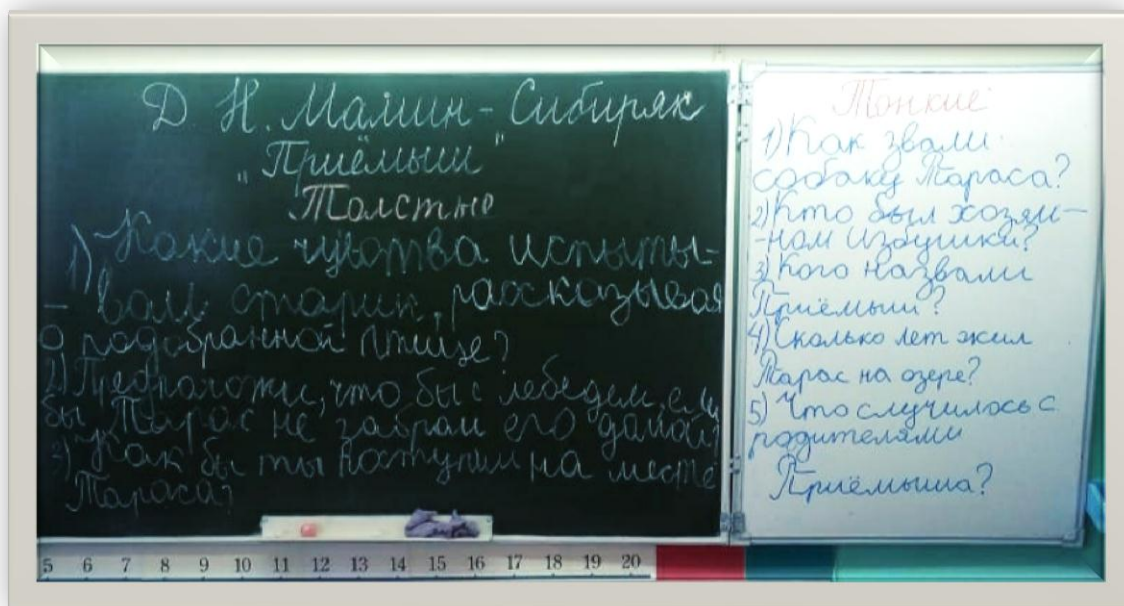 Д. Н. Мамин-Сибиряк
„Приёмыш"
Толстые
1) Какие чувства испыты-
- вал старик, рассказывая
о подобранной птице?
2) Предположи, что бы с лебедем, если
бы Тарас не забрал его домой?
3) Как бы ты поступил на месте
Тараса?
Тонкие
1) Как звали
собаку Тараса?
2) Кто был хозяи-
-ном избушки?
3) Кого назвали
Приёмыш?
4) Сколько лет жил
Тарас на озере?
5) Что случилось с
родителями
Приёмыша?
5 6 7 8 9 10 11 12 13 14 15 16 17 18 19 20